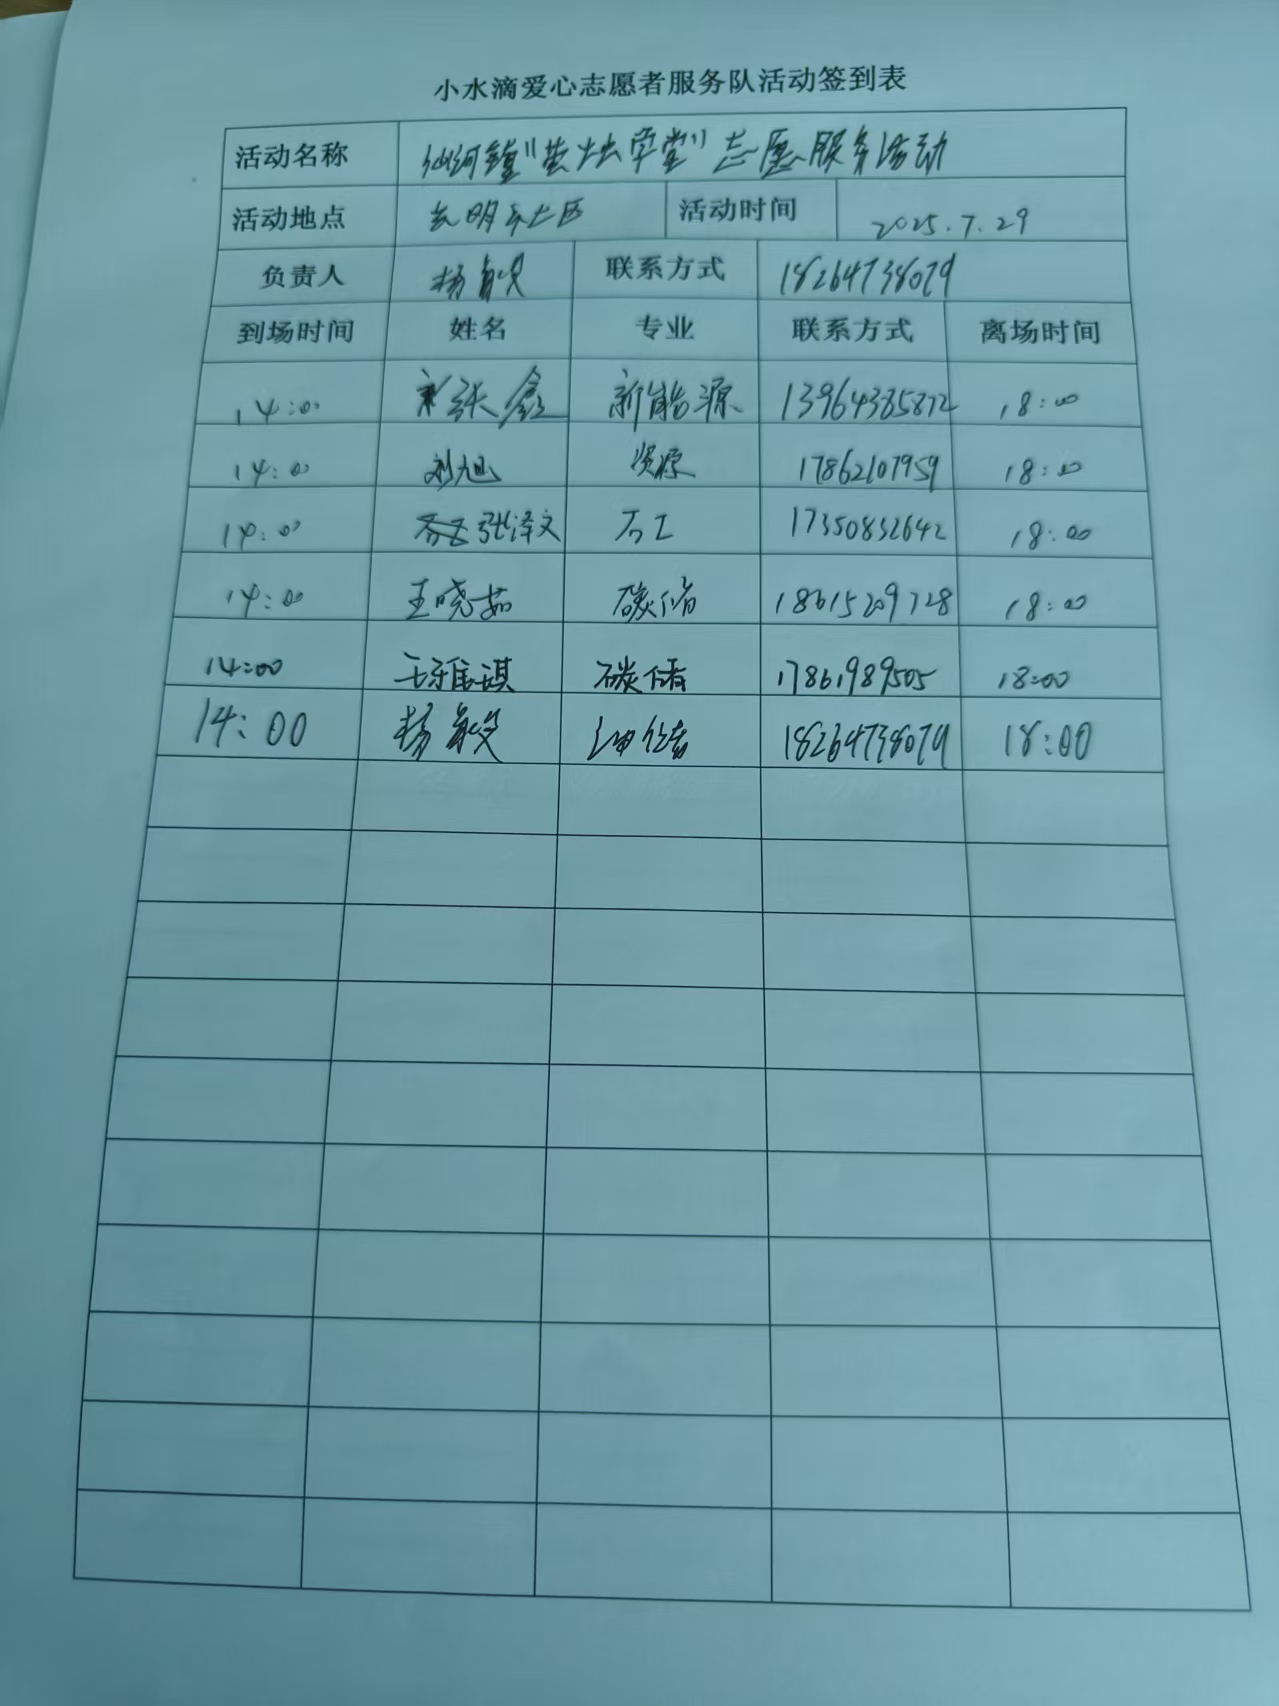 小水滴爱心志愿者服务队活动签到表
活动名称 仙河镇"萤烛学堂"志愿服务活动
活动地点 光明社区 活动时间 2025.7.29
负责人 杨 联系方式 18264738079
到场时间 姓名 专业 联系方式 离场时间
14:00 张鑫 新能源 13964385872 18:00
14:00 刘旭 资源 17862107959 18:00
14:00 张泽文 石工 17350832642 18:00
14:00 王晓茹 碳储 18615209728 18:00
14:00 王雅琪 碳储 17861989505 18:00
14:00 杨 油储 18264738079 18:00